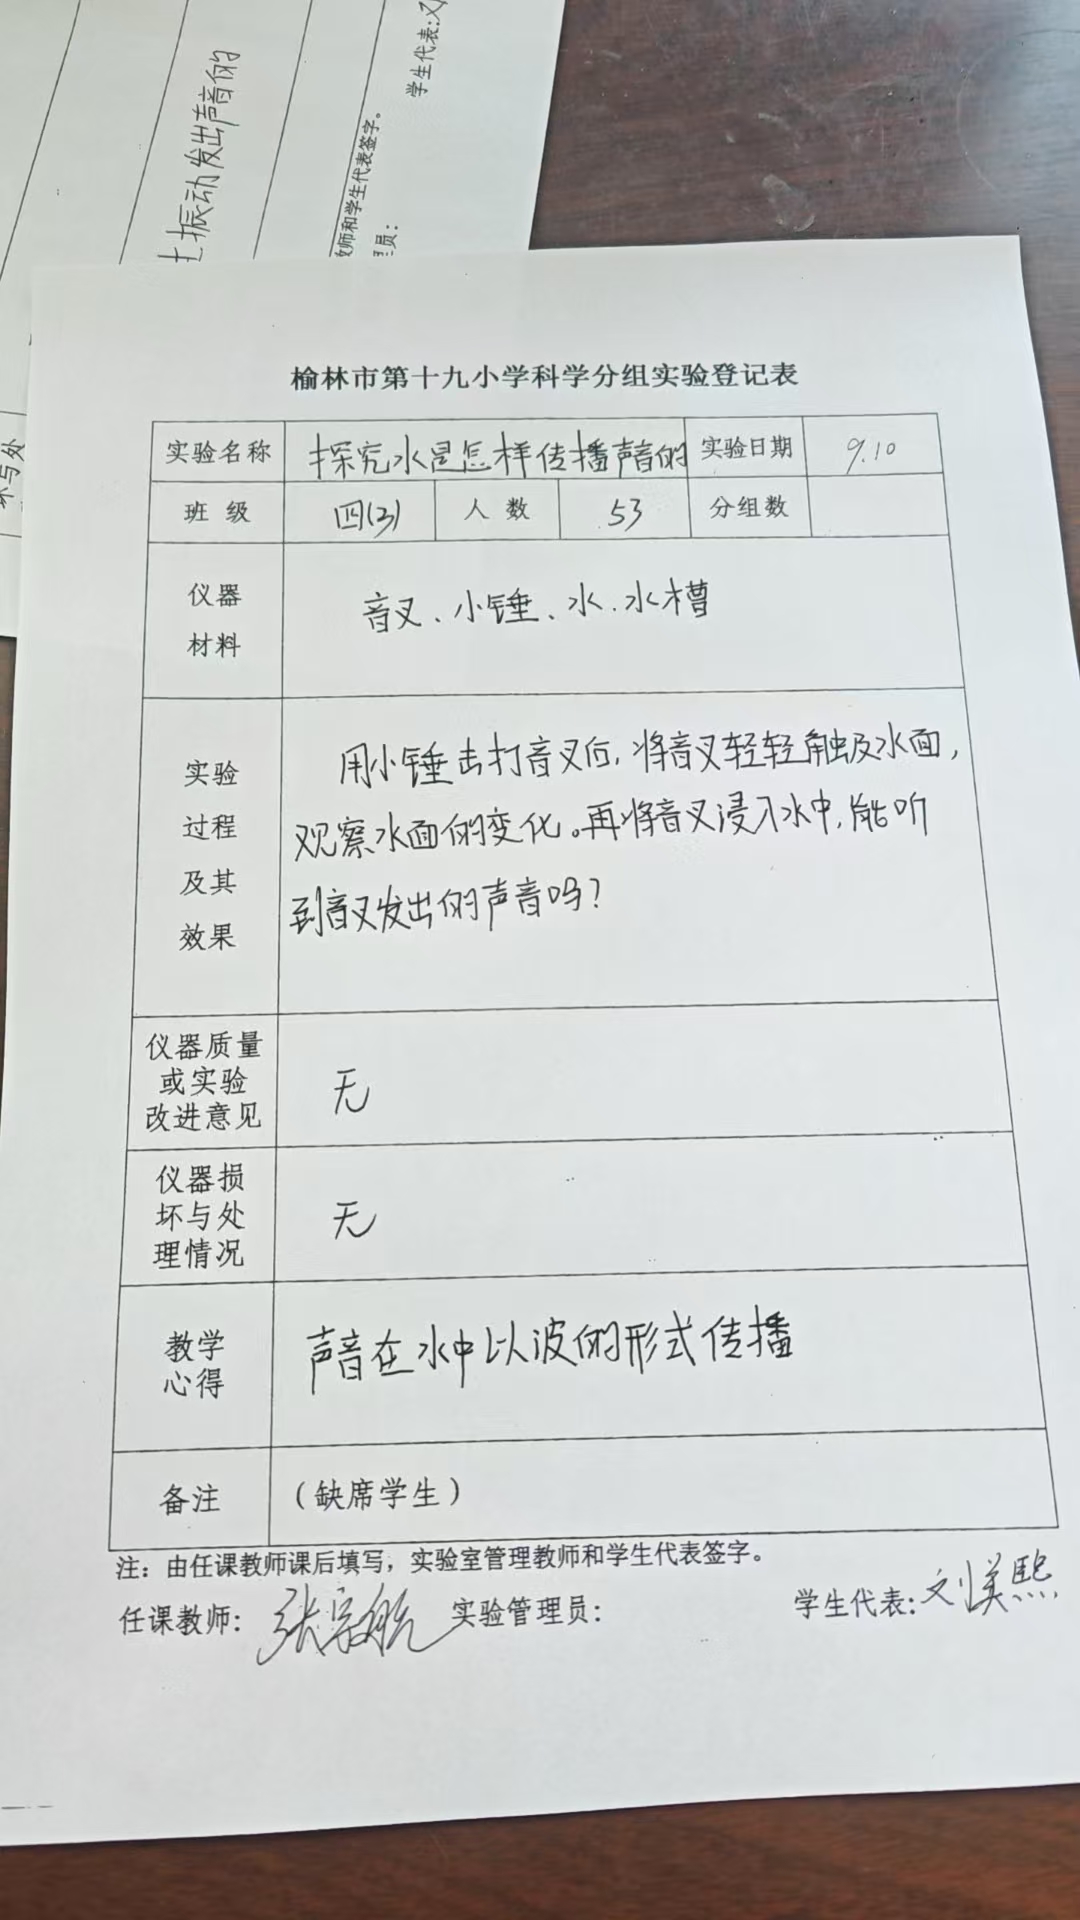 振动发出声音的
教师和学生代表签字。
学生代表:
榆林市第十九小学科学分组实验登记表
实验名称 探究水是怎样传播声音的 实验日期 9.10
班级 四(3) 人数 53 分组数
仪器
材料
音叉、小锤、水、水槽
实验
过程
及其
效果
用小锤击打音叉后,将音叉轻轻触及水面,
观察水面的变化。再将音叉浸入水中,能听
到音叉发出的声音吗?
仪器质量
或实验
改进意见
无
仪器损
坏与处
理情况
无
教学
心得
声音在水中以波的形式传播
备注 (缺席学生)
注:由任课教师课后填写,实验室管理教师和学生代表签字。
任课教师: 张宗航 实验管理员: 学生代表: 刘美熙